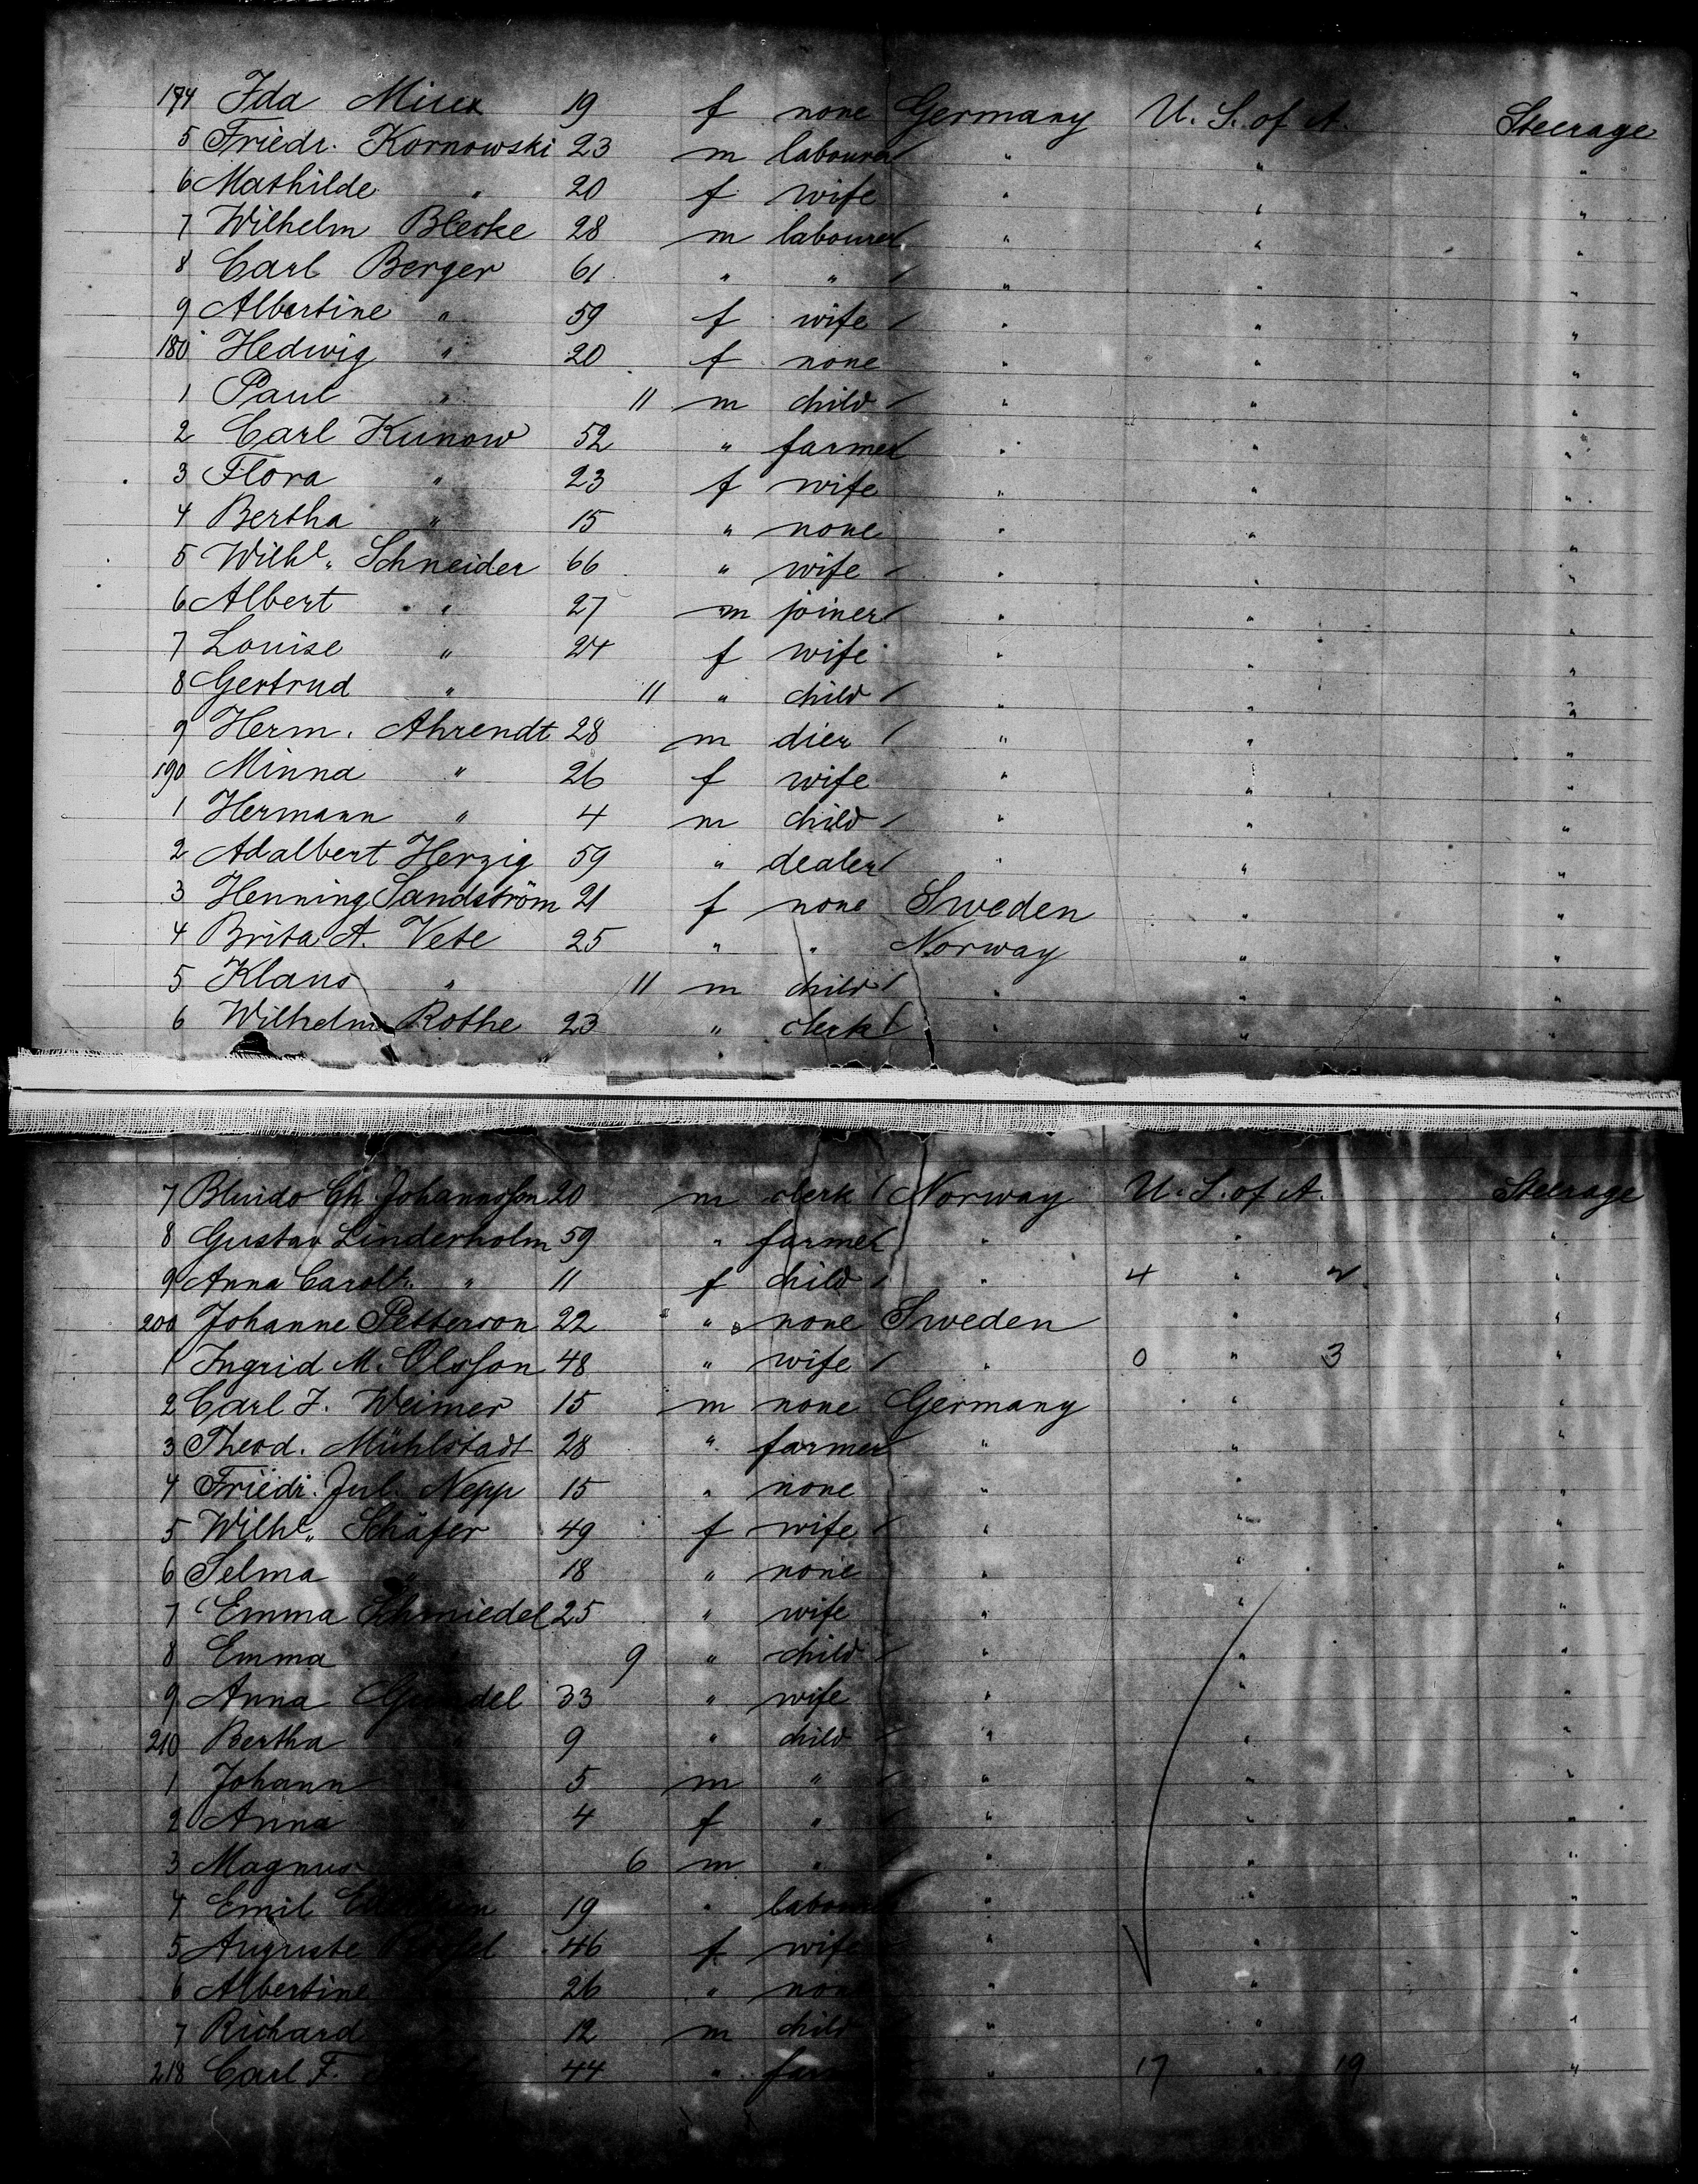 174 Ida 19 f none Germany U. S. of A. Steerage
5 Friedr. Kornowski 23 m labourer " " "
6 Mathilde " 20 f wife " " "
7 Wilhelm Blecke 28 m labourer " " "
8 Carl Berger 61 " " " " "
9 Albertine " 59 f wife " " "
180 Hedwig " 20 f none " " "
1 Paul " 11 m child " " "
2 Carl Kunow 52 " farmer " " "
3 Flora " 23 f wife " " "
4 Bertha " 15 " none " " "
5 Wilhe. Schneider 66 " wife " " "
6 Albert " 27 m joiner " " "
7 Louise " 24 f wife " " "
8 Gertrud " 11 " child " " "
9 Herm. Ahrendt 28 m dier " " "
190 Minna " 26 f wife " " "
1 Hermann " 4 m child " " "
2 Adalbert Herzig 59 " dealer " " "
3 Henning Sandström 21 f none Sweden " "
4 Brita A. Vete 25 " " Norway " "
5 Klaus " 11 m child " " "
6 Wilhelm Rothe 23 " clerk " " "
7 Ch. Johannssen 20 m clerk Norway U. S. of A. Steerage
8 Gustav Linderholm 59 " farmer " " "
9 Anna Carolt. " 11 f child " 4 " 2 "
200 Johanne Petterson 22 " none Sweden " "
1 Ingrid M. Olsson 48 " wife " 0 " 3 "
2 Carl J. Weimer 15 m none Germany " "
3 Theod. Mühlstadt 28 " farmer " " "
4 Friedr. Jul. Nepp 15 " none " " "
5 Wilhe. Schäfer 49 f wife " " "
6 Selma " 18 " none " " "
7 Emma Schmiedel 25 " wife " " "
8 Emma " 9 " child " " "
9 Anna 33 " wife " " "
210 Bertha " 9 " child " " "
1 Johann 5 m " " " "
2 Anna " 4 f " " " "
3 Magnus 6 m " " " "
4 Emil 19 " labourer " " "
5 Auguste 46 f wife " " "
6 Albertine 26 " none " " "
7 Richard 12 m child " " "
218 Carl F. 44 " " 17 " 19 "